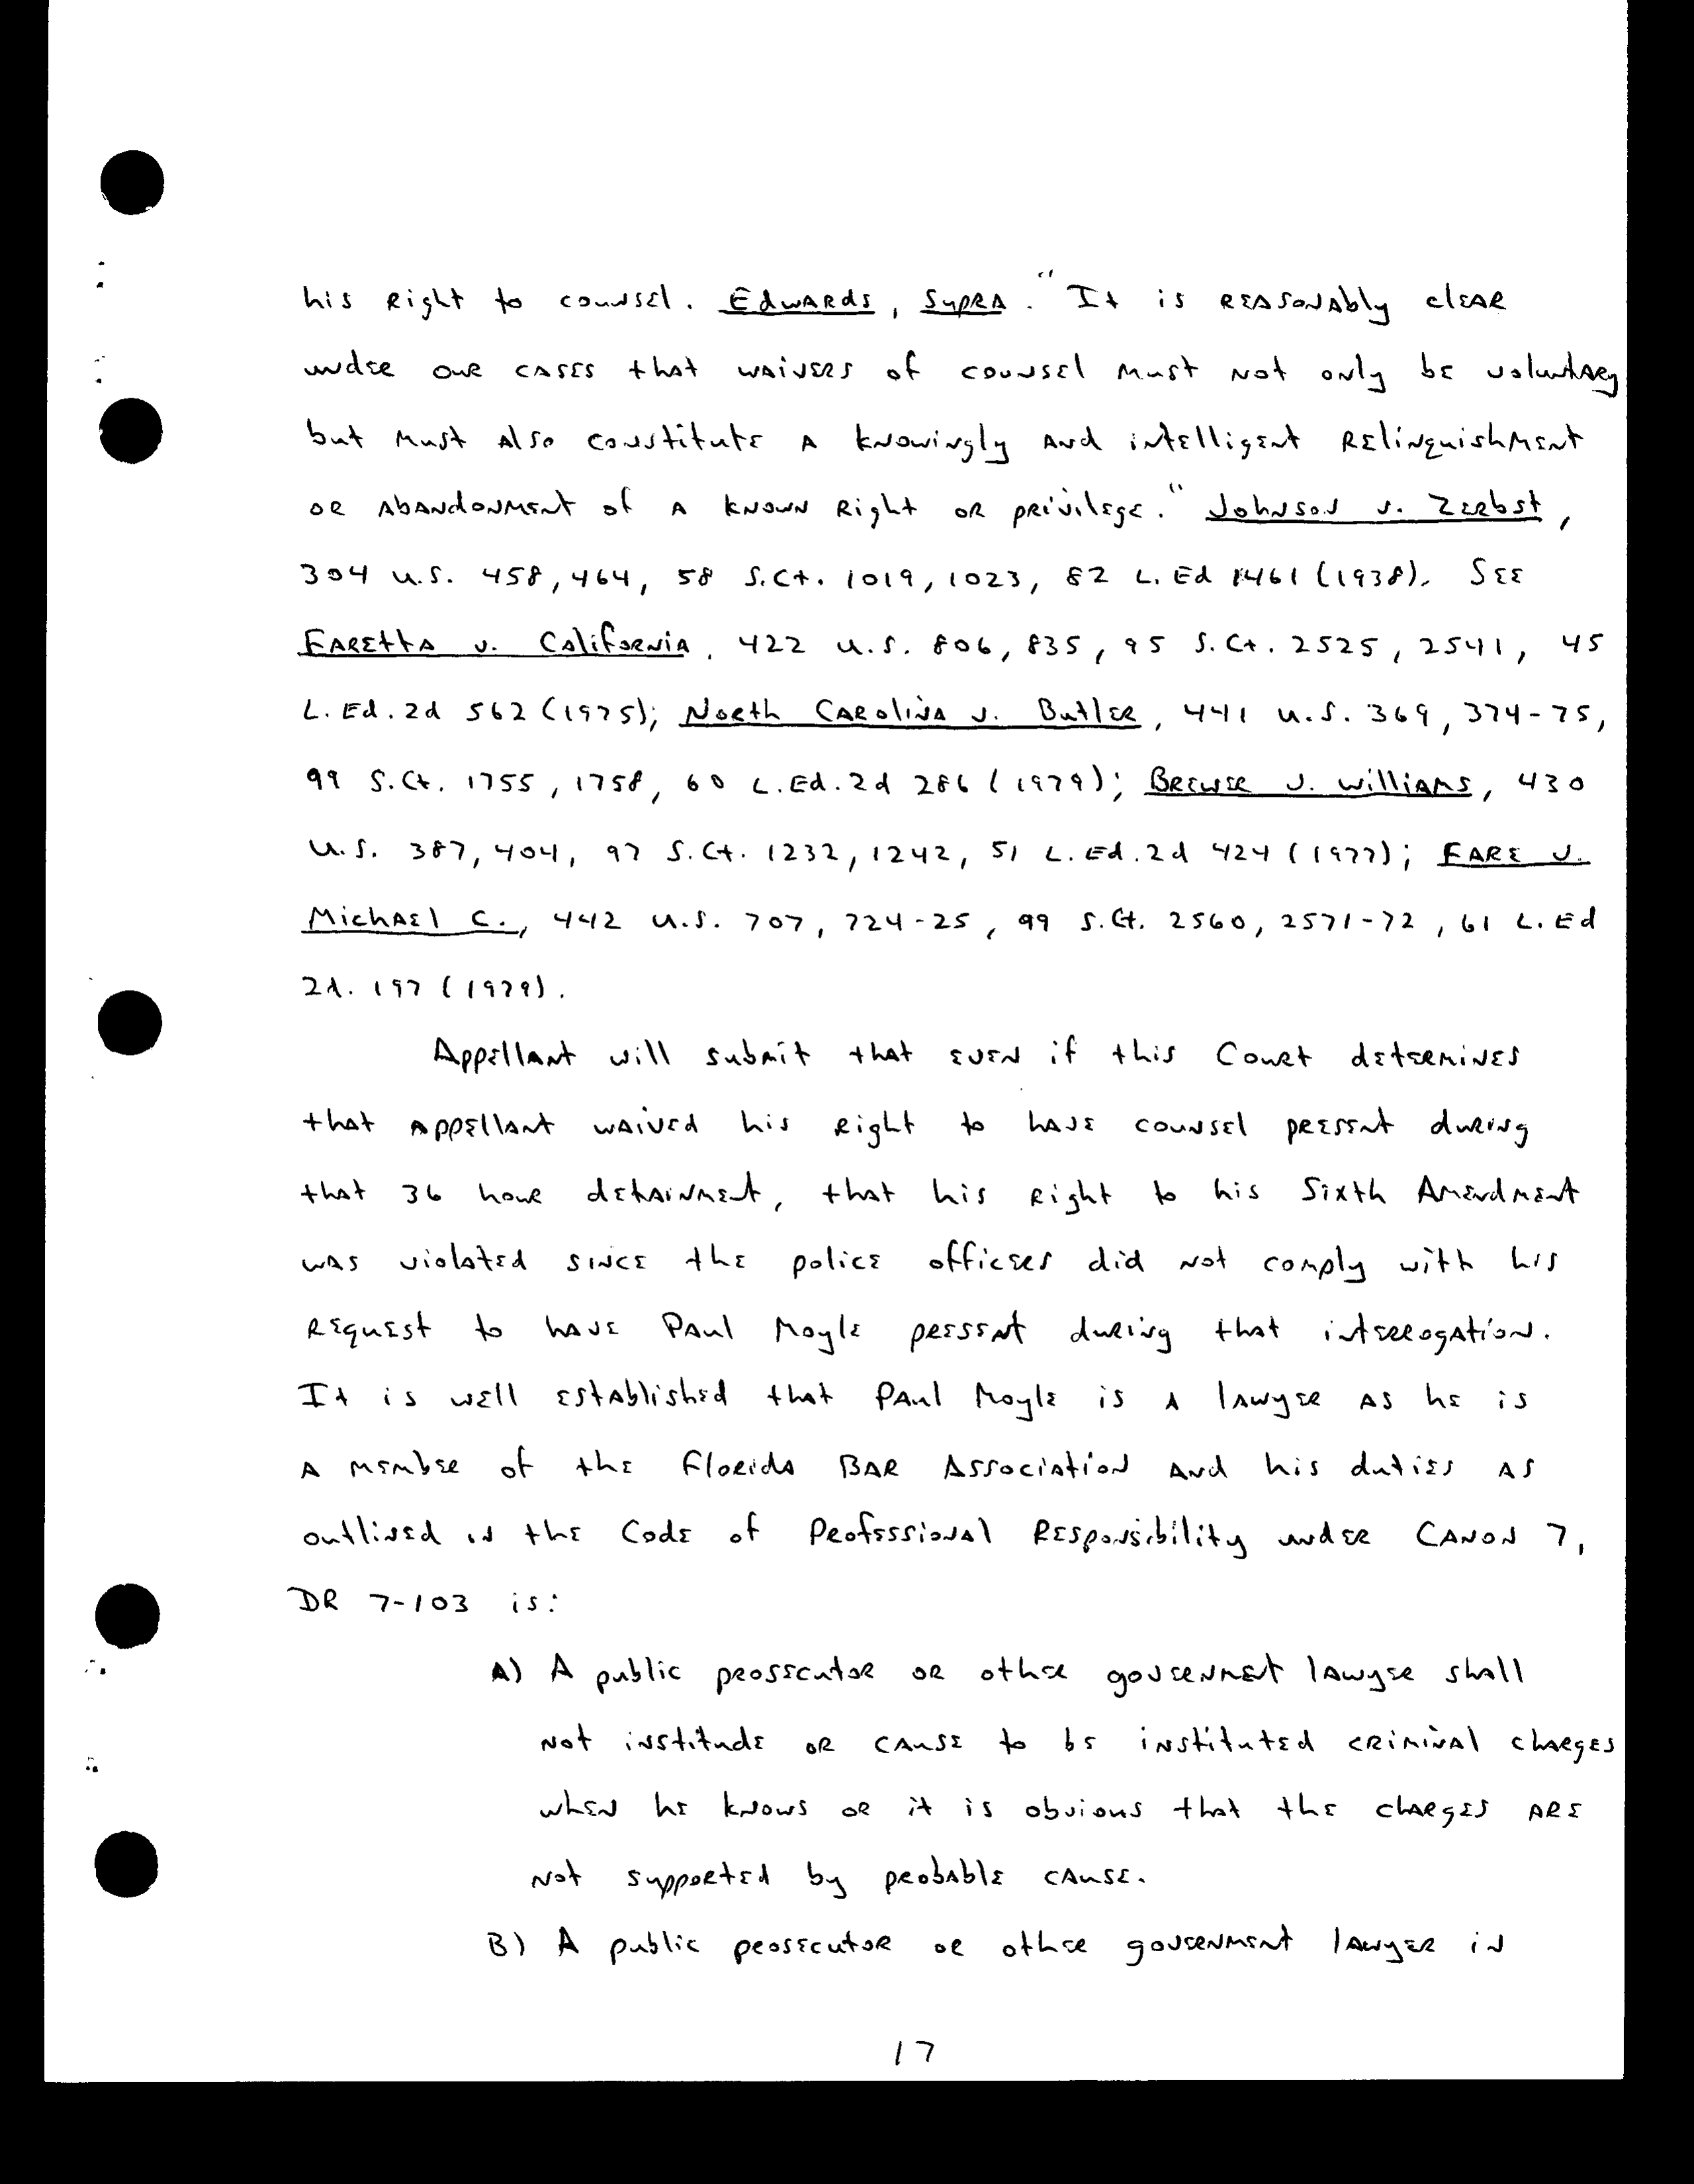 his Right to counsel. Edwards, Supra. "It is reasonably clear
under our cases that waivers of counsel must not only be voluntary
but must also constitute a knowingly and intelligent relinquishment
or abandonment of a known right or privilege." Johnson v. Zerbst,
304 U.S. 458, 464, 58 S.Ct. 1019, 1023, 82 L.Ed 1461 (1938). See
Faretta v. California, 422 U.S. 806, 835, 95 S.Ct. 2525, 2541, 45
L.Ed.2d 562 (1975); North Carolina v. Butler, 441 U.S. 369, 374-75,
99 S.Ct. 1755, 1758, 60 L.Ed.2d 286 (1979); Brewer v. Williams, 430
U.S. 387, 404, 97 S.Ct. 1232, 1242, 51 L.Ed.2d 424 (1977); Fare v.
Michael C., 442 U.S. 707, 724-25, 99 S.Ct. 2560, 2571-72, 61 L.Ed
2d. 197 (1979).
Appellant will submit that even if this Court determines
that appellant waived his right to have counsel present during
that 36 hour detainment, that his right to his Sixth Amendment
was violated since the police officers did not comply with his
request to have Paul Moyle present during that interrogation.
It is well established that Paul Moyle is a lawyer as he is
a member of the Florida Bar Association and his duties as
outlined in the Code of Professional Responsibility under Canon 7,
DR 7-103 is:
A) A public prosecutor or other government lawyer shall
not institude or cause to be instituted criminal charges
when he knows or it is obvious that the charges are
not supported by probable cause.
B) A public prosecutor or other government lawyer in
17